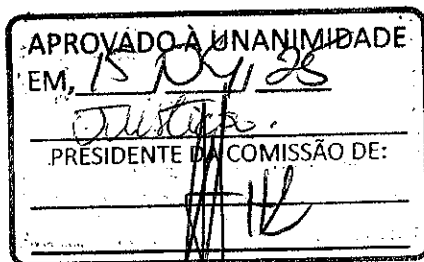 APROVADO À UNANIMIDADE
EM, 15 / 04 / 25
Justiça.
PRESIDENTE DA COMISSÃO DE: